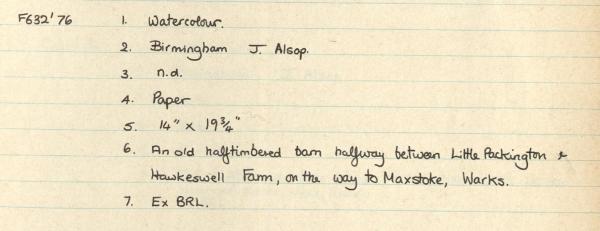 F632'76 1. Watercolour.
2. Birmingham J. Alsop.
3. n.d.
4. Paper
5. 14" x 19¾"
6. An old halftimbered barn halfway between Little Packington &
Hawkeswell Farm, on the way to Maxstoke, Warks.
7. Ex BRL.